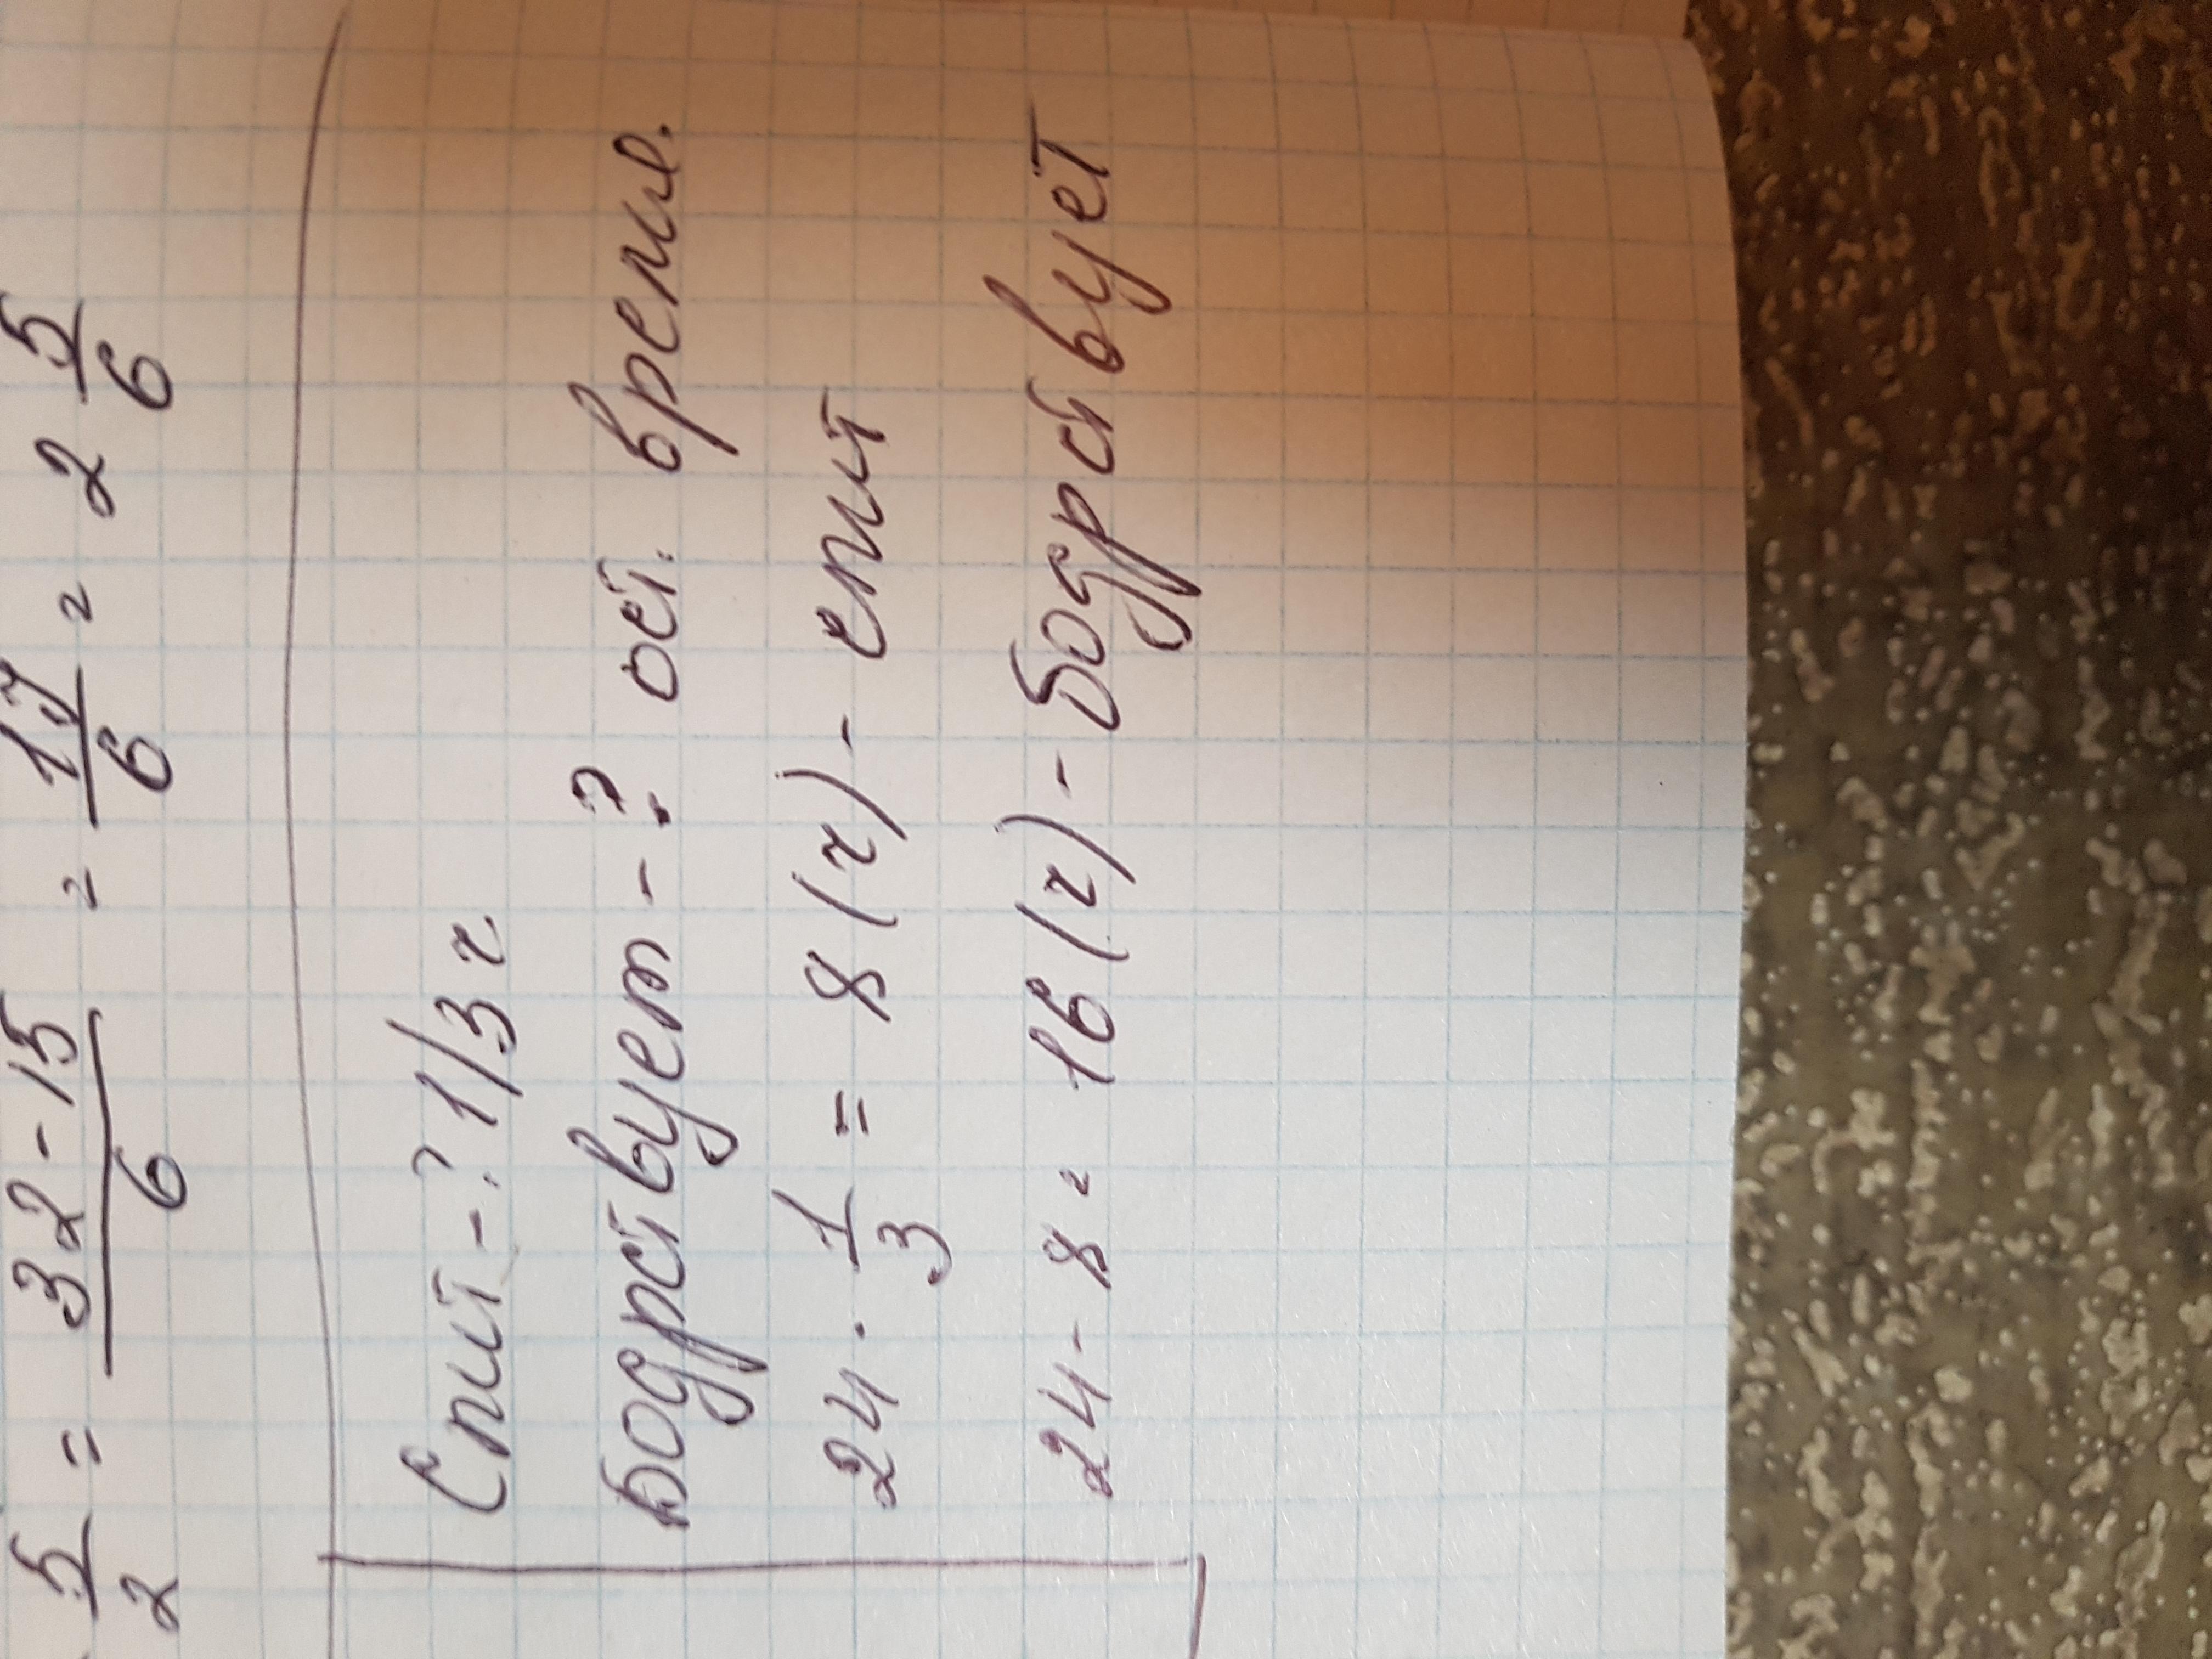 5/2 = 32-15/6 = 17/6 = 2 5/6
Спит - ? 1/3 ч
Бодрствует - ? ост. время.
24 · 1/3 = 8 (ч) - спит
24 - 8 = 16 (ч) - бодрствует